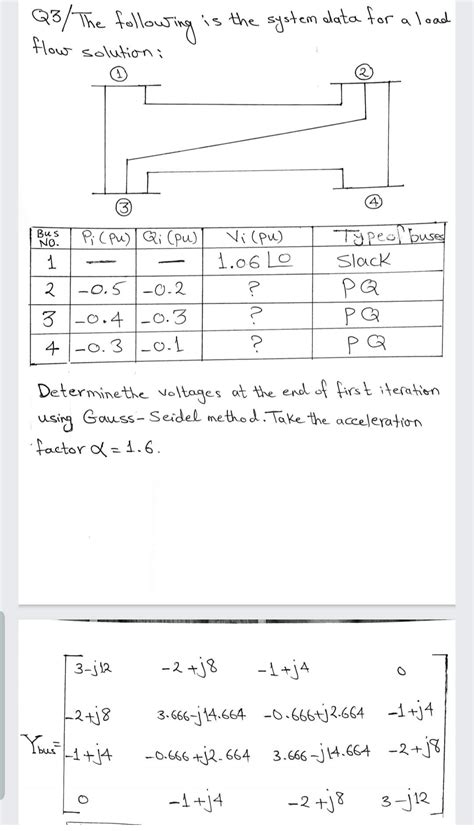 Q3/The following is the system data for a load
flow solution:
1 2
3 4
Bus NO. Pi (pu) Qi (pu) Vi (pu) Type of buses
1 — — 1.06∠0 Slack
2 -0.5 -0.2 ? PQ
3 -0.4 -0.3 ? PQ
4 -0.3 -0.1 ? PQ
Determine the voltages at the end of first iteration
using Gauss-Seidel method. Take the acceleration
factor α = 1.6.
3-j12 -2+j8 -1+j4 0
-2+j8 3.666-j14.664 -0.666+j2.664 -1+j4
Ybus= -1+j4 -0.666+j2.664 3.666-j14.664 -2+j8
0 -1+j4 -2+j8 3-j12